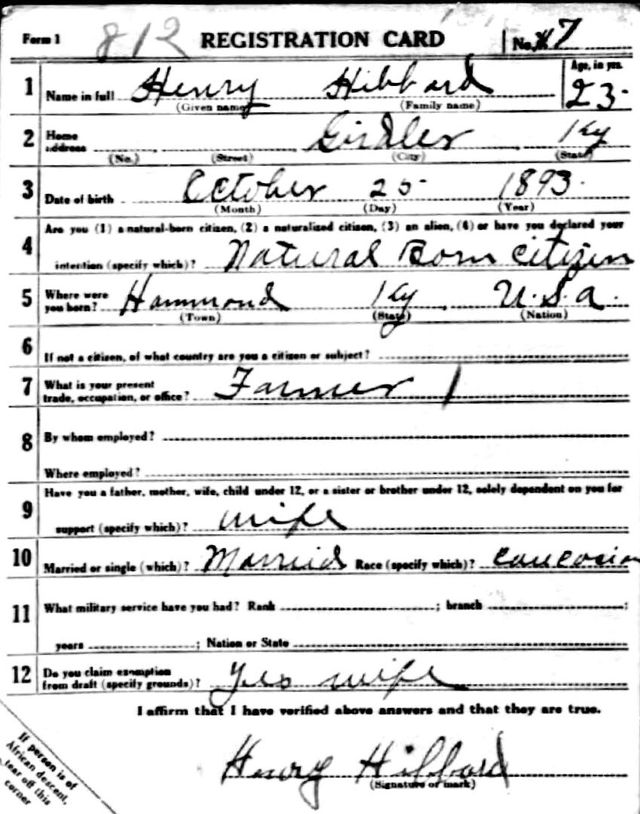 Form 1 812 REGISTRATION CARD No. 7
1 Name in full Henry Hibbard Age, in yrs. 23
(Given name) (Family name)
2 Home address Girdler Ky
(No.) (Street) (City) (State)
3 Date of birth October 25 1893
(Month) (Day) (Year)
4 Are you (1) a natural-born citizen, (2) a naturalized citizen, (3) an alien, (4) or have you declared your
intention (specify which)? Natural Born Citizen
5 Where were you born? Hammond Ky U.S.a.
(Town) (State) (Nation)
6 If not a citizen, of what country are you a citizen or subject?
7 What is your present trade, occupation, or office? Farmer
8 By whom employed?
Where employed?
9 Have you a father, mother, wife, child under 12, or a sister or brother under 12, solely dependent on you for
support (specify which)? wife
10 Married or single (which)? Married Race (specify which)? Caucasian
11 What military service have you had? Rank ; branch ;
years ; Nation or State
12 Do you claim exemption from draft (specify grounds)? Yes wife
I affirm that I have verified above answers and that they are true.
Henry Hibbard
(Signature or mark)
If person is of
African descent,
tear off this
corner